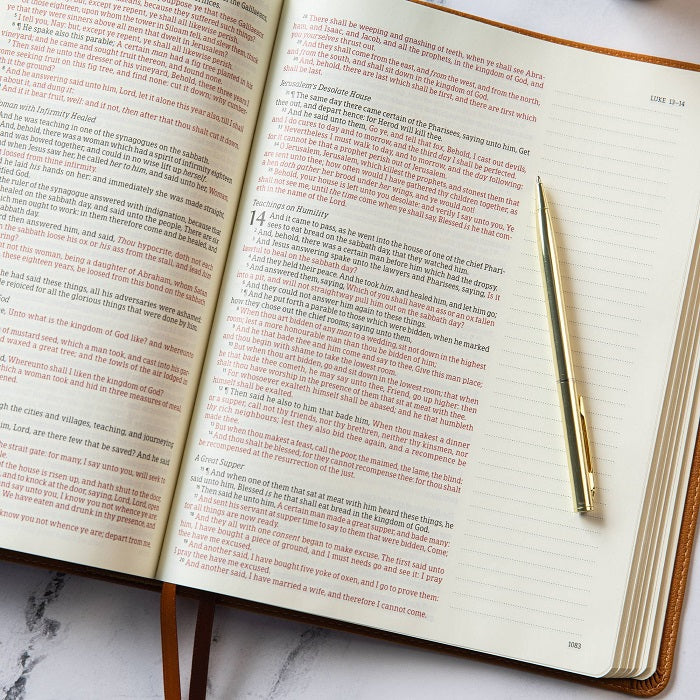 of those eighteen, upon whom the tower in Siloam fell, and slew them, think
ye that they were sinners above all men that dwelt in Jerusalem?
I tell you, Nay: but, except ye repent, ye shall all likewise perish.
6 ¶ He spake also this parable; A certain man had a fig tree planted in his
vineyard; and he came and sought fruit thereon, and found none.
Then said he unto the dresser of his vineyard, Behold, these three years I
come seeking fruit on this fig tree, and find none: cut it down; why cumber-
8 And he answering said unto him, Lord, let it alone this year also, till I shall
dig about it, and dung it:
9 And if it bear fruit, well: and if not, then after that thou shalt cut it down.
Woman with Infirmity Healed
And he was teaching in one of the synagogues on the sabbath.
And, behold, there was a woman which had a spirit of infirmity eighteen
and was bowed together, and could in no wise lift up herself.
when Jesus saw her, he called her to him, and said unto her, Woman,
loosed from thine infirmity.
he laid his hands on her: and immediately she was made straight,
ified God.
the ruler of the synagogue answered with indignation, because that
healed on the sabbath day, and said unto the people, There are six
which men ought to work: in them therefore come and be healed, and
abbath day.
ord then answered him, and said, Thou hypocrite, doth not each
the sabbath loose his ox or his ass from the stall, and lead him
ering?
not this woman, being a daughter of Abraham, whom Satan
these eighteen years, be loosed from this bond on the sabbath
he had said these things, all his adversaries were ashamed:
e rejoiced for all the glorious things that were done by him.
God
Unto what is the kingdom of God like? and whereunto
of mustard seed, which a man took, and cast into his gar-
waxed a great tree; and the fowls of the air lodged in
Whereunto shall I liken the kingdom of God?
which a woman took and hid in three measures of meal,
ened.
gh the cities and villages, teaching, and journeying
him, Lord, are there few that be saved? And he said
strait gate: for many, I say unto you, will seek to
le.
of the house is risen up, and hath shut to the door,
and to knock at the door, saying, Lord, Lord, open
and say unto you, I know you not whence ye are:
We have eaten and drunk in thy presence, and
know you not whence ye are; depart from me,
LUKE 13–14
28 There shall be weeping and gnashing of teeth, when ye shall see Abra-
ham, and Isaac, and Jacob, and all the prophets, in the kingdom of God, and
you yourselves thrust out.
29 And they shall come from the east, and from the west, and from the north,
and from the south, and shall sit down in the kingdom of God.
30 And, behold, there are last which shall be first, and there are first which
shall be last.
Jerusalem's Desolate House
31 ¶ The same day there came certain of the Pharisees, saying unto him, Get
thee out, and depart hence: for Herod will kill thee.
32 And he said unto them, Go ye, and tell that fox, Behold, I cast out devils,
and I do cures to day and to morrow, and the third day I shall be perfected.
33 Nevertheless I must walk to day, and to morrow, and the day following:
for it cannot be that a prophet perish out of Jerusalem.
34 O Jerusalem, Jerusalem, which killest the prophets, and stonest them that
are sent unto thee; how often would I have gathered thy children together, as
a hen doth gather her brood under her wings, and ye would not!
35 Behold, your house is left unto you desolate: and verily I say unto you, Ye
shall not see me, until the time come when ye shall say, Blessed is he that com-
eth in the name of the Lord.
Teachings on Humility
14 And it came to pass, as he went into the house of one of the chief Phari-
sees to eat bread on the sabbath day, that they watched him.
2 And, behold, there was a certain man before him which had the dropsy.
3 And Jesus answering spake unto the lawyers and Pharisees, saying, Is it
lawful to heal on the sabbath day?
4 And they held their peace. And he took him, and healed him, and let him go;
5 And answered them, saying, Which of you shall have an ass or an ox fallen
into a pit, and will not straightway pull him out on the sabbath day?
6 And they could not answer him again to these things.
7 ¶ And he put forth a parable to those which were bidden, when he marked
how they chose out the chief rooms; saying unto them,
8 When thou art bidden of any man to a wedding, sit not down in the highest
room; lest a more honourable man than thou be bidden of him;
9 And he that bade thee and him come and say to thee, Give this man place;
and thou begin with shame to take the lowest room.
10 But when thou art bidden, go and sit down in the lowest room; that when
he that bade thee cometh, he may say unto thee, Friend, go up higher: then
shalt thou have worship in the presence of them that sit at meat with thee.
11 For whosoever exalteth himself shall be abased; and he that humbleth
himself shall be exalted.
12 ¶ Then said he also to him that bade him, When thou makest a dinner
or a supper, call not thy friends, nor thy brethren, neither thy kinsmen, nor
thy rich neighbours; lest they also bid thee again, and a recompence be
made thee.
13 But when thou makest a feast, call the poor, the maimed, the lame, the blind:
14 And thou shalt be blessed; for they cannot recompense thee: for thou shalt
be recompensed at the resurrection of the just.
A Great Supper
15 ¶ And when one of them that sat at meat with him heard these things, he
said unto him, Blessed is he that shall eat bread in the kingdom of God.
16 Then said he unto him, A certain man made a great supper, and bade many:
17 And sent his servant at supper time to say to them that were bidden, Come;
for all things are now ready.
18 And they all with one consent began to make excuse. The first said unto
him, I have bought a piece of ground, and I must needs go and see it: I pray
thee have me excused.
19 And another said, I have bought five yoke of oxen, and I go to prove them:
I pray thee have me excused.
20 And another said, I have married a wife, and therefore I cannot come.
1083